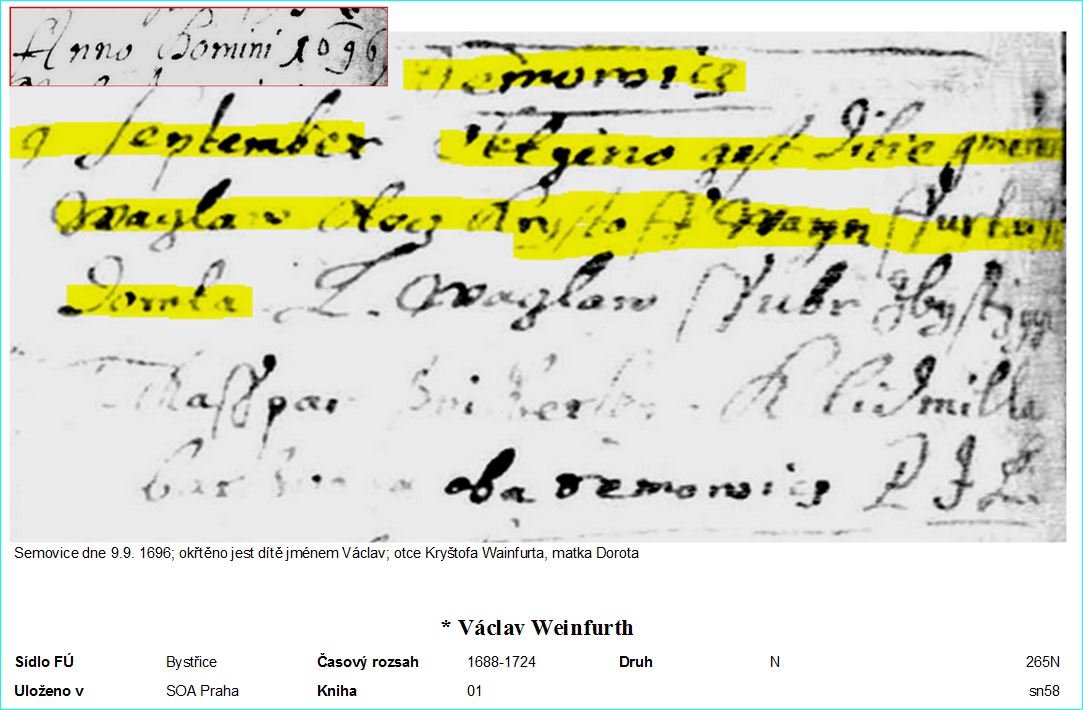 Anno Domini 1696
Semowicz
9 September Okržtieno gest Ditie gmenem
Waczlaw Otcz Krysstoff Waynffurt
Dorota L. Waczlaw z Bystrzycz
Kasspar R Lidmilla
oba Semowicz P J L
Semovice dne 9.9. 1696; okřtěno jest dítě jménem Václav; otce Kryštofa Wainfurta, matka Dorota
* Václav Weinfurth
Sídlo FÚ Bystřice Časový rozsah 1688-1724 Druh N 265N
Uloženo v SOA Praha Kniha 01 sn58